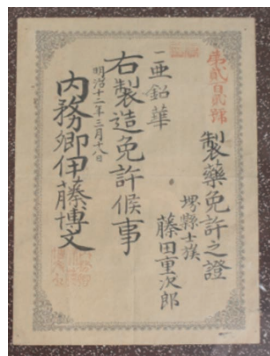 第貳百貳號
製藥免許之證
堺縣士族
藤田重次郎
一亜鉛華
右製造免許候事
明治十二年三月十八日
内務卿伊藤博文